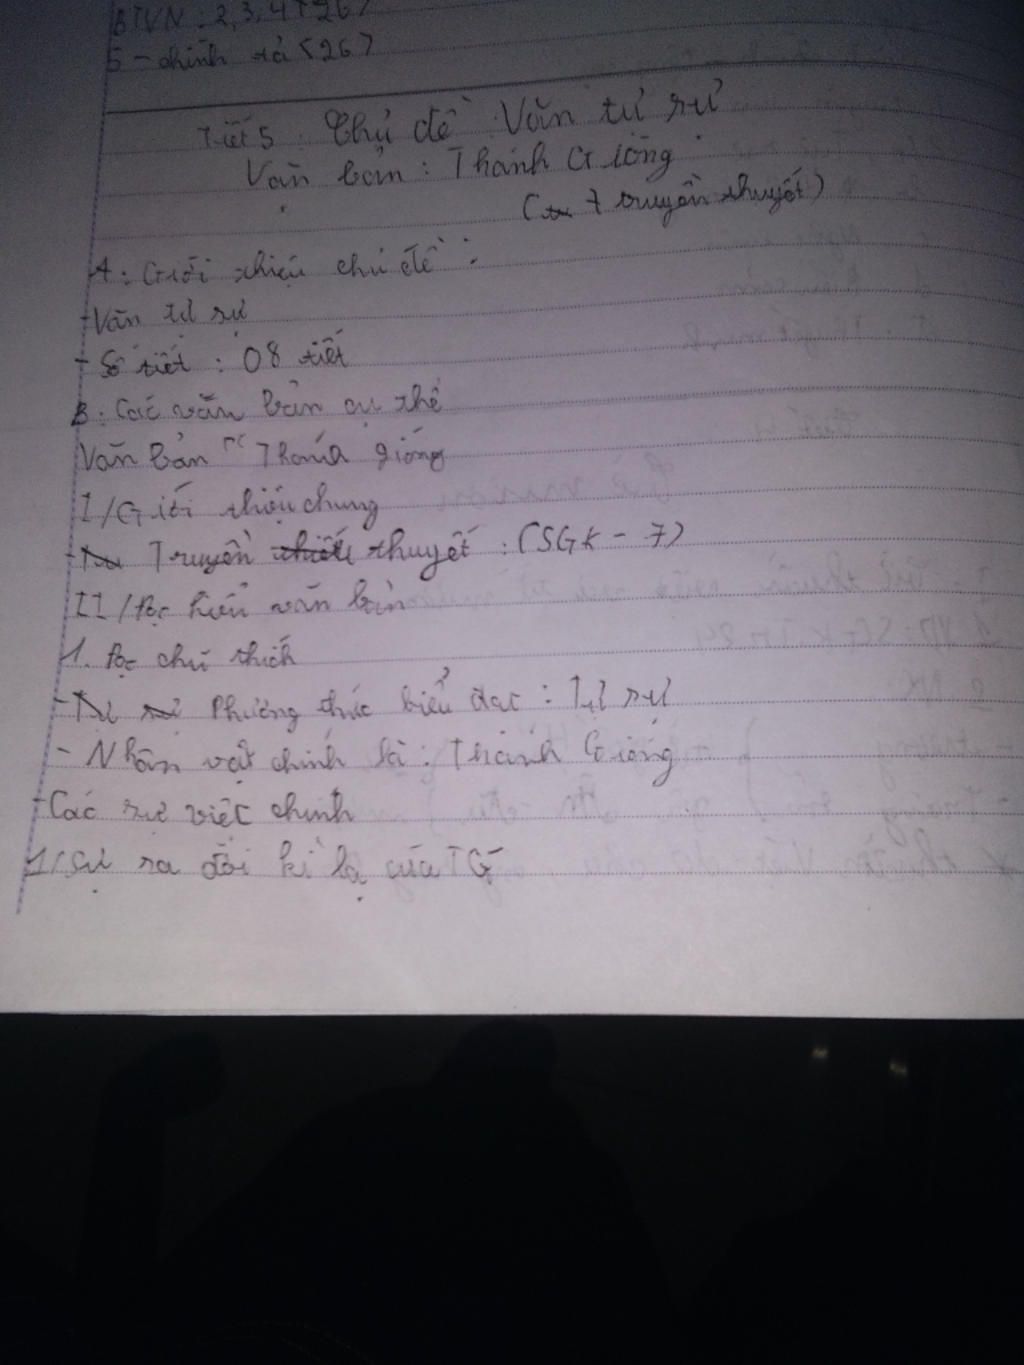 BTVN : 2, 3, 4 + 26)
5 - chính tả <26>
Tiết 5 : Chủ đề : Văn tự sự
Văn bản : Thánh Gióng
( 7 truyền thuyết)
A : Giới thiệu chủ đề :
- Văn tự sự
- Số tiết : 08 tiết
B : Các văn bản cụ thể
Văn bản " Thánh gióng
I / Giới thiệu chung
- Truyền thuyết : (SGK - 7)
II / Đọc hiểu văn bản
1. Đọc chú thích
- Phương thức biểu đạt : Tự sự
- Nhân vật chính là : Thánh Gióng
- Các sự việc chính
1/ Sự ra đời kì lạ của TG